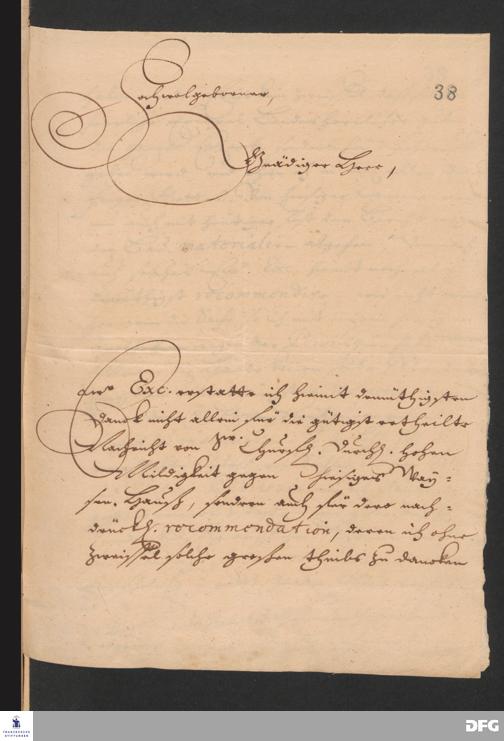 38
Hochwolgeborner,
Gnädiger Herr,
Ew. Exc. erstatte ich hiemit demüthigsten
Danck nicht allein für die gütigst ertheilte
Nachricht von Sr. Churfl. Durchl. hohen
Mildigkeit gegen hiesiges Way-
sen-Hauß, sondern auch für dero nach-
drückl. recommendation, deren ich ohne
zweiffel solche großen theils zu dancken
FRANCKESCHE
STIFTUNGEN
DFG